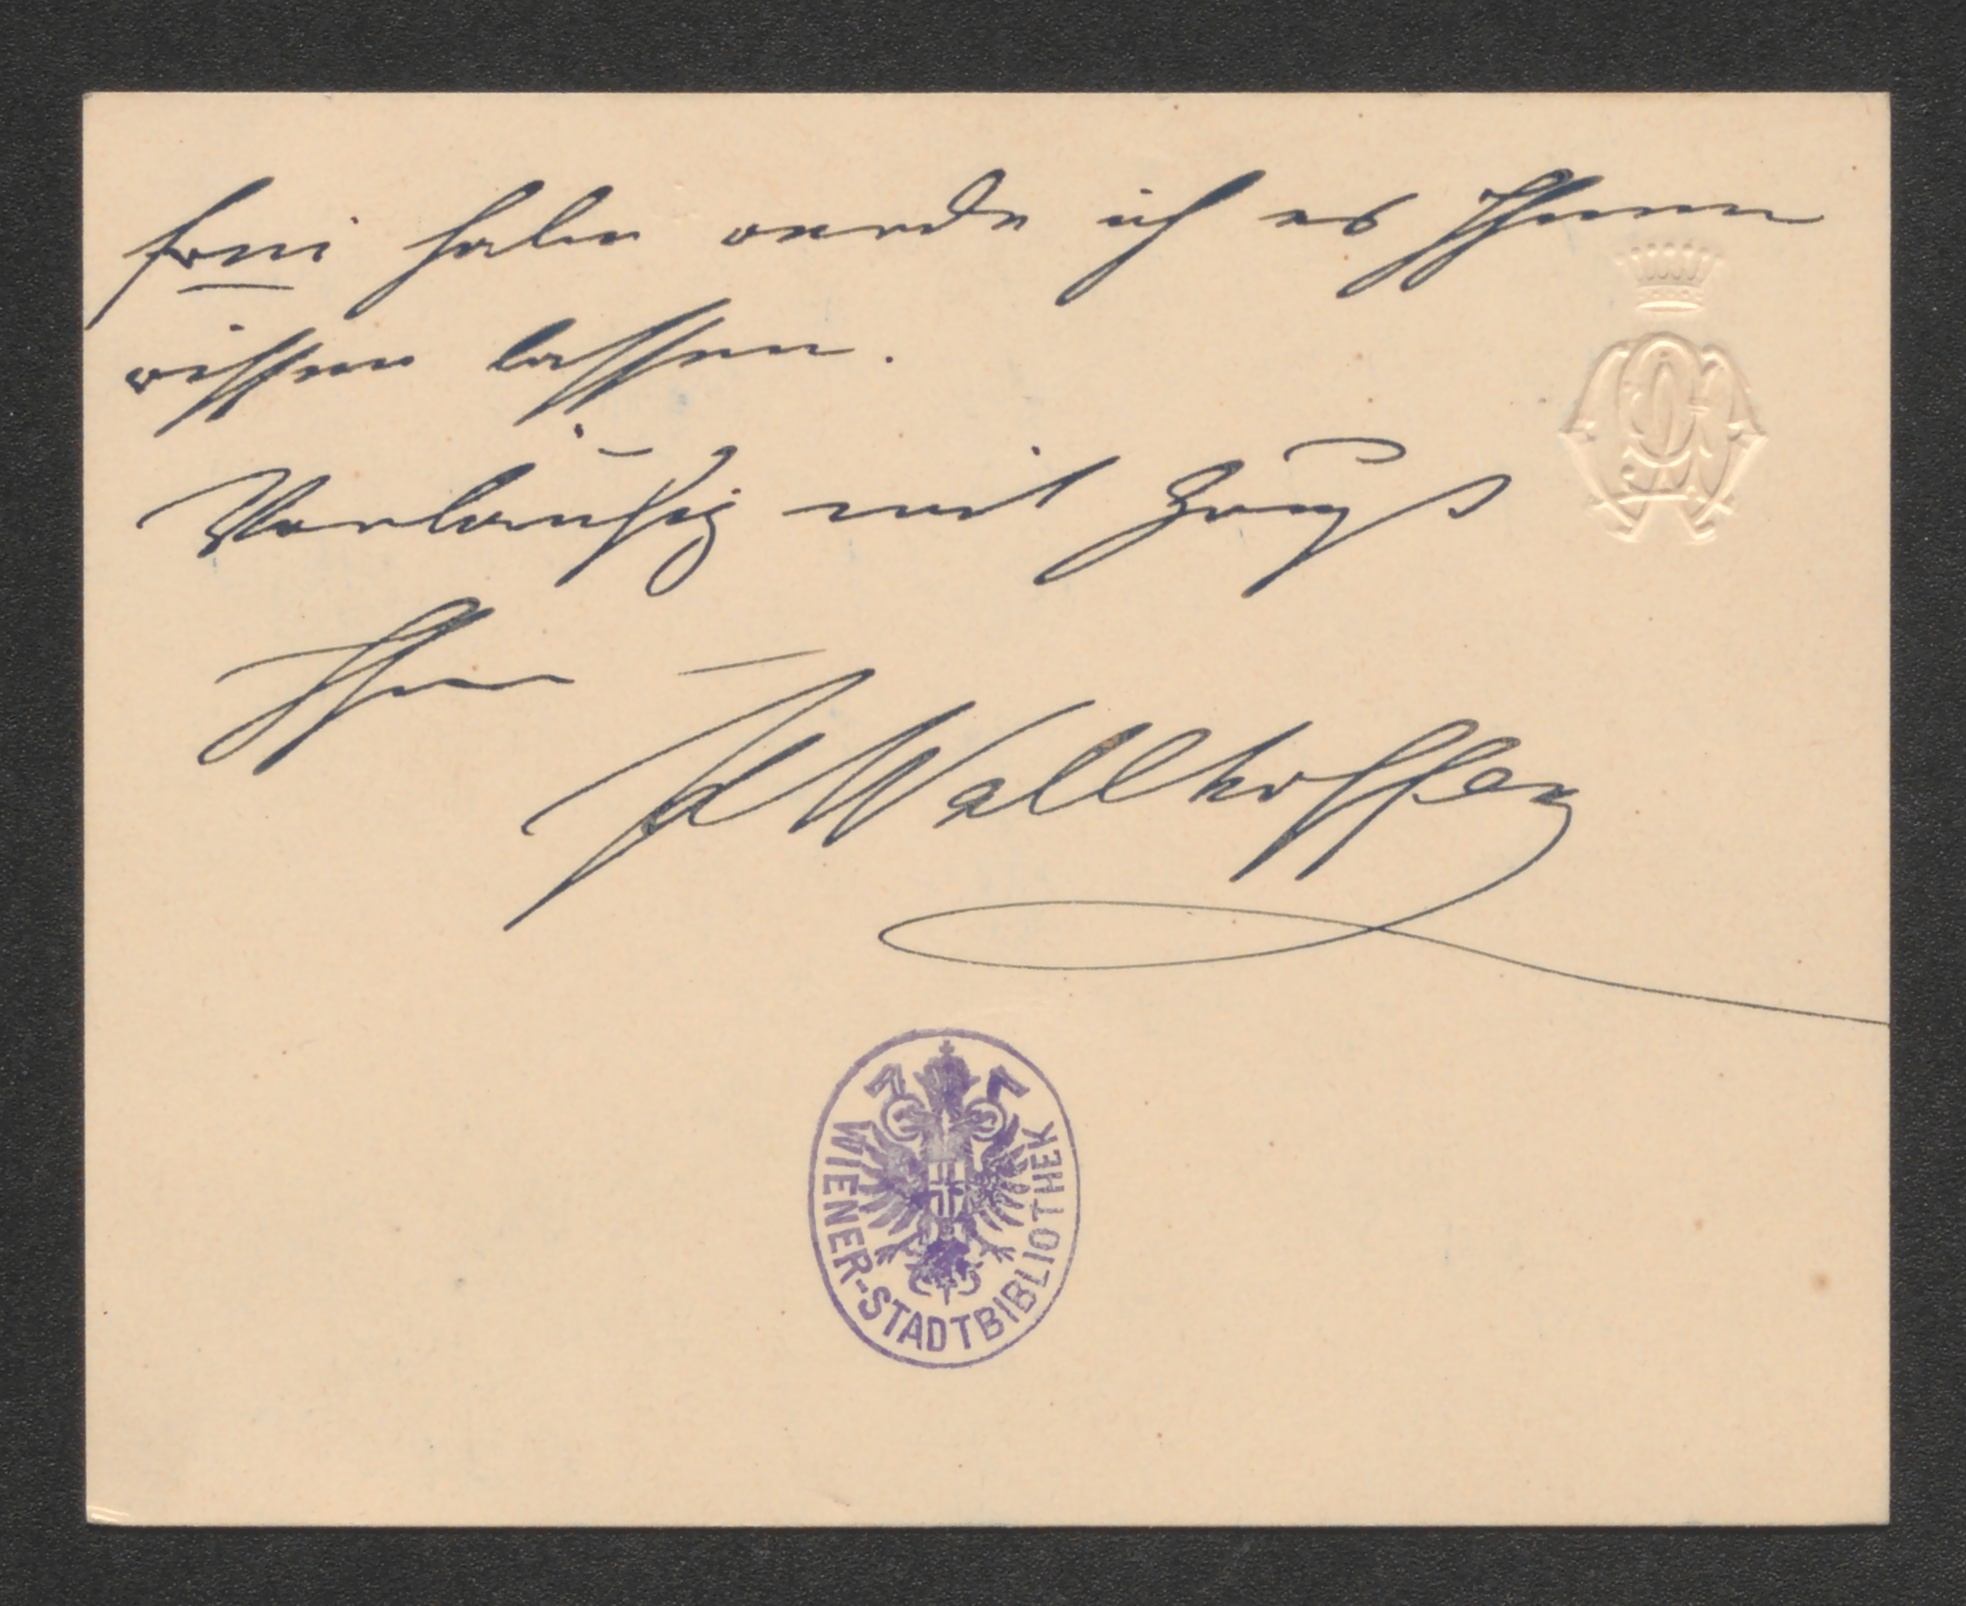 frei habe werde ich es Ihnen
wissen lassen.
Vorläufig mit Gruß
Ihr
Wallhoffen
WIENER-STADTBIBLIOTHEK